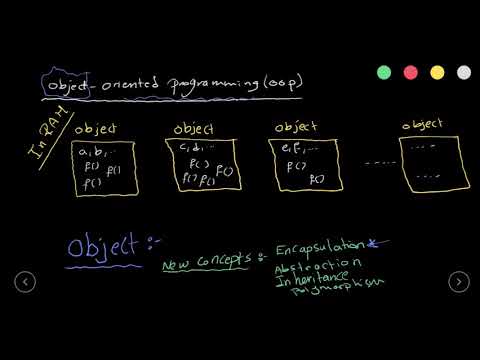 object-oriented programming (oop)
In RAM
object object object object
a, b, .. c, d, ... e, f, ... ....
f() f() f() f()
f() f() f() f() f() ....
object :-
New concepts :- Encapsulation
Abstraction
Inheritance
Polymorphism